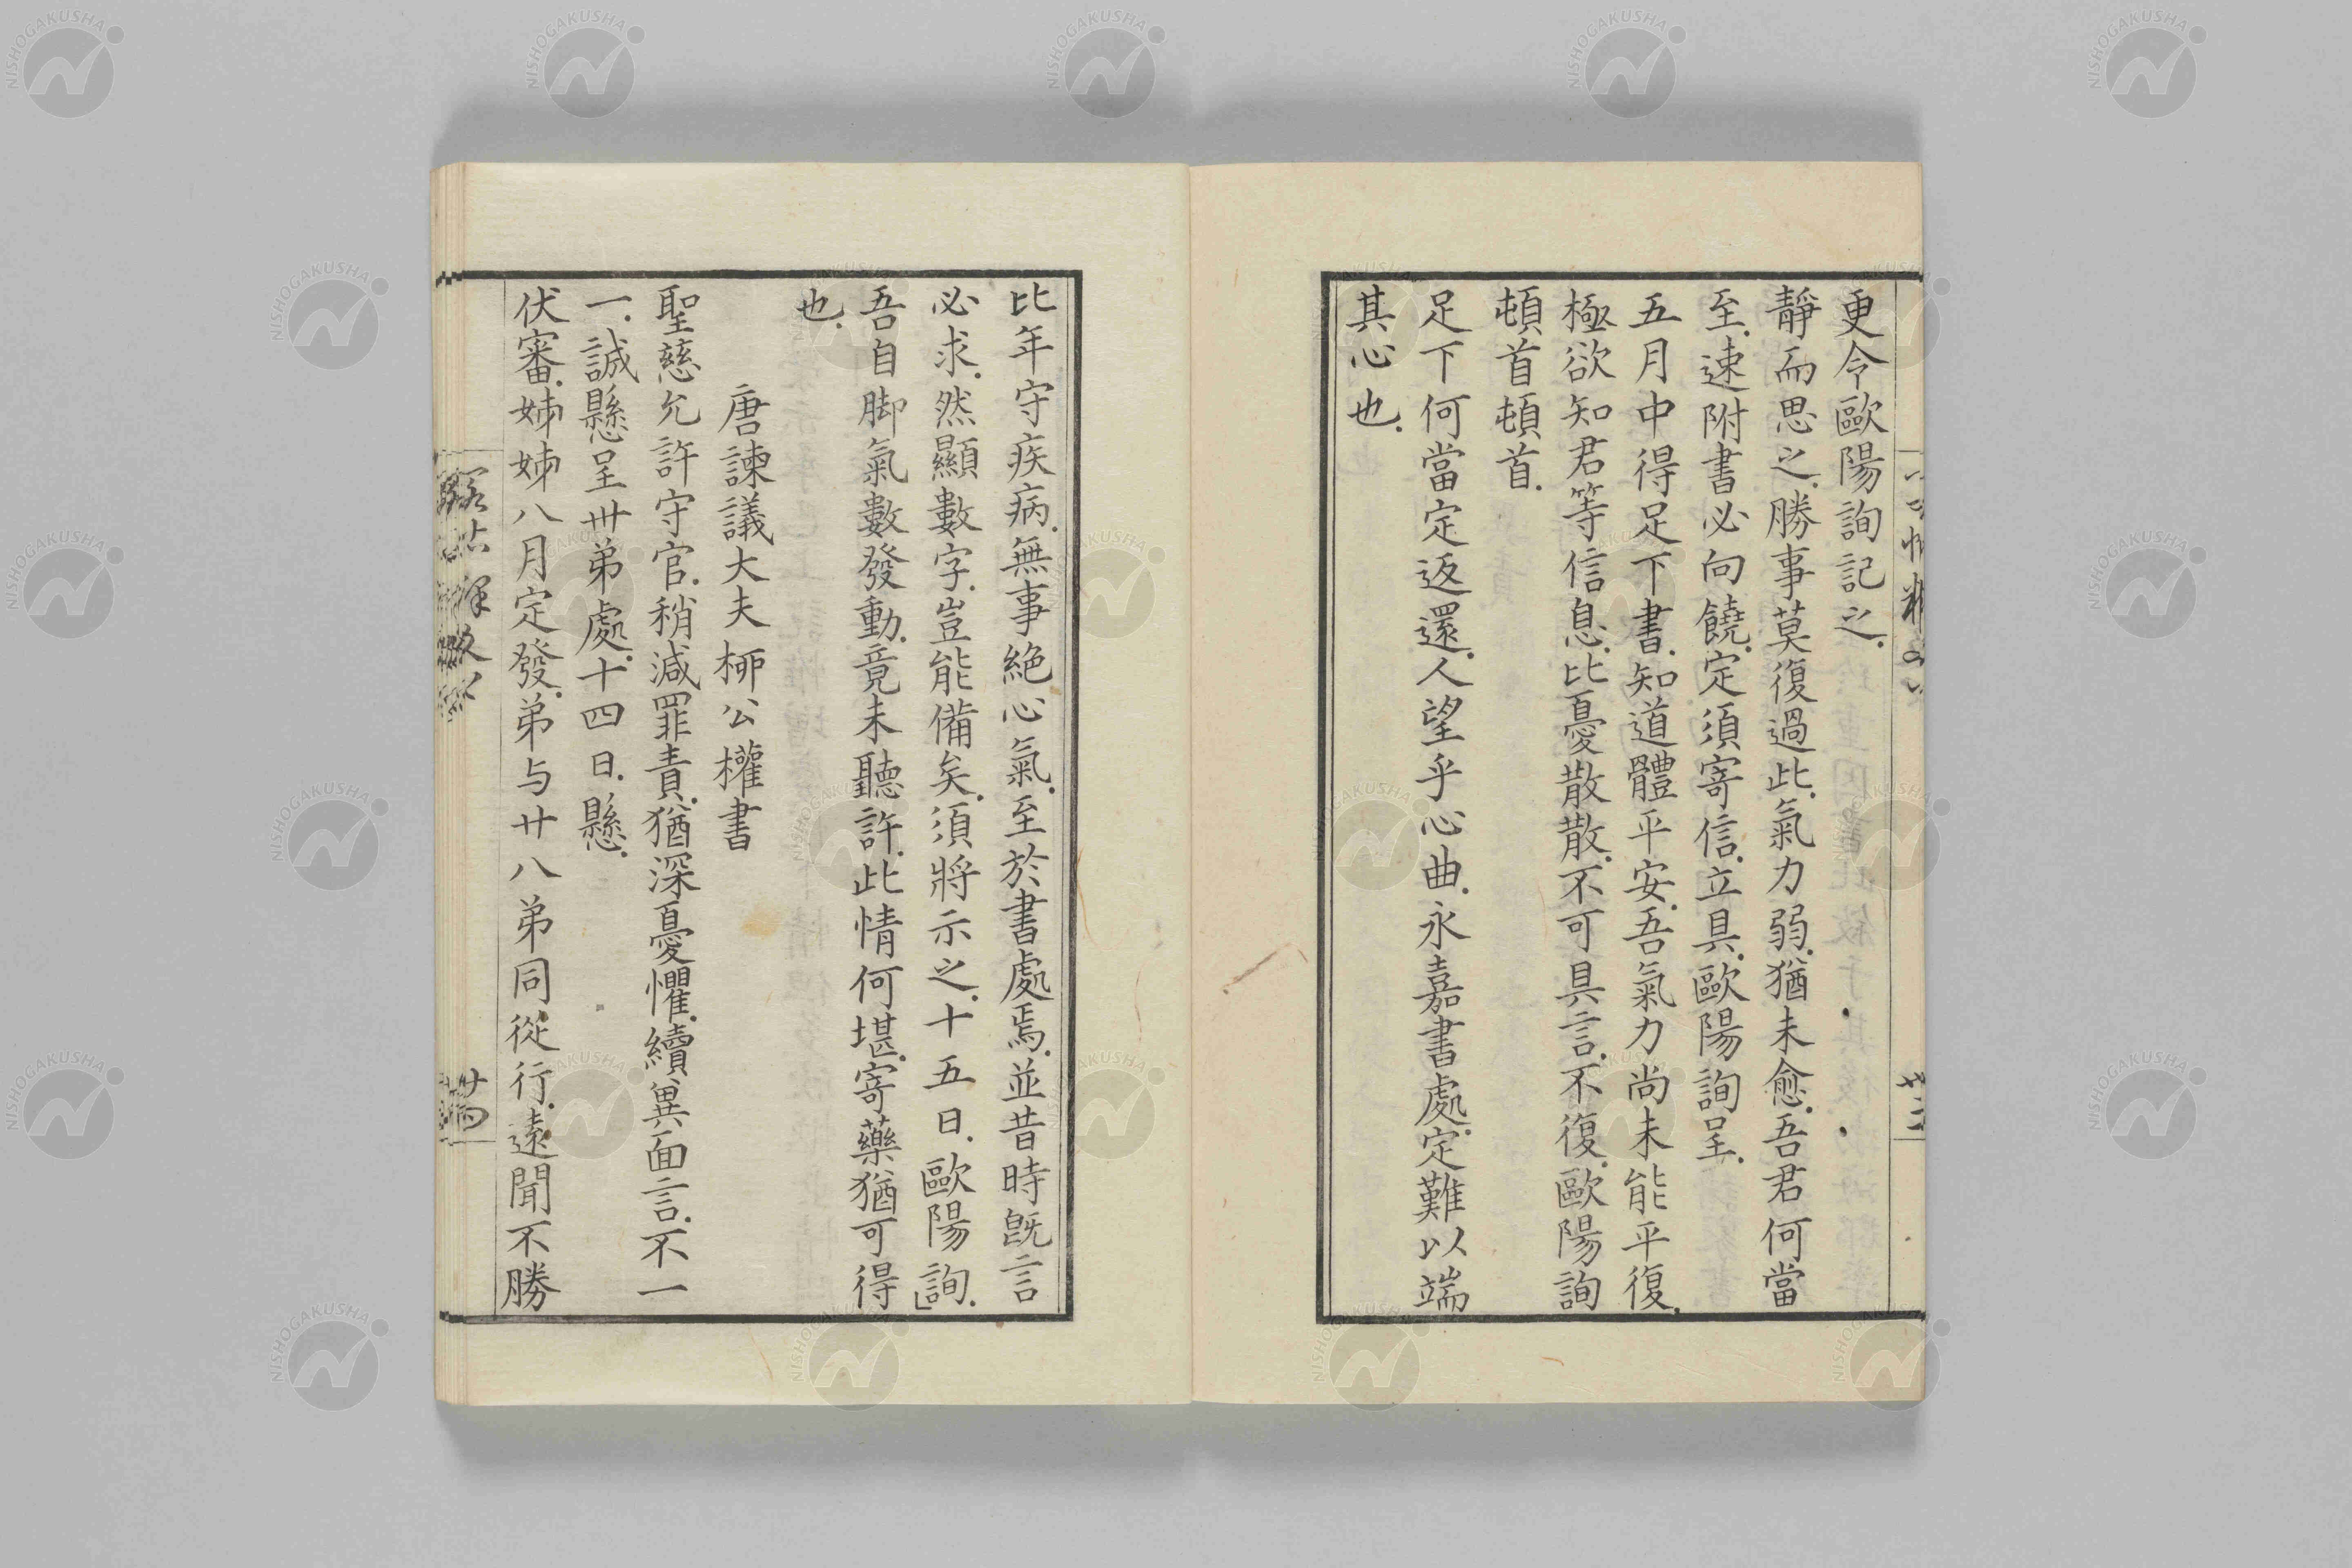 更令歐陽詢記之.
靜而思之.勝事莫復過此.氣力弱.猶未愈.吾君何當
至.速附書必向饒.定須寄信.立具.歐陽詢呈.
五月中得足下書.知道體平安.吾氣力尚未能平復.
極欲知君等信息.比憂散散.不可具言.不復.歐陽詢
頓首頓首.
足下何當定返還.人望乎心曲.永嘉書處.定難以端
其心也.
比年守疾病.無事絕心氣.至於書處焉.並昔時既言
必求.然顯數字.豈能備矣.須將示之.十五日.歐陽詢.
吾自脚氣數發動.竟未聽許.此情何堪.寄藥猶可得
也.
唐諫議大夫柳公權書
聖慈允許守官.稍減罪責.猶深憂懼.續異面言.不一
一.誠懸呈卅弟處.十四日.懸.
伏審.姊姊八月定發.弟与廿八弟同從行.遠聞不勝
廿四
NISHOGAKUSHA